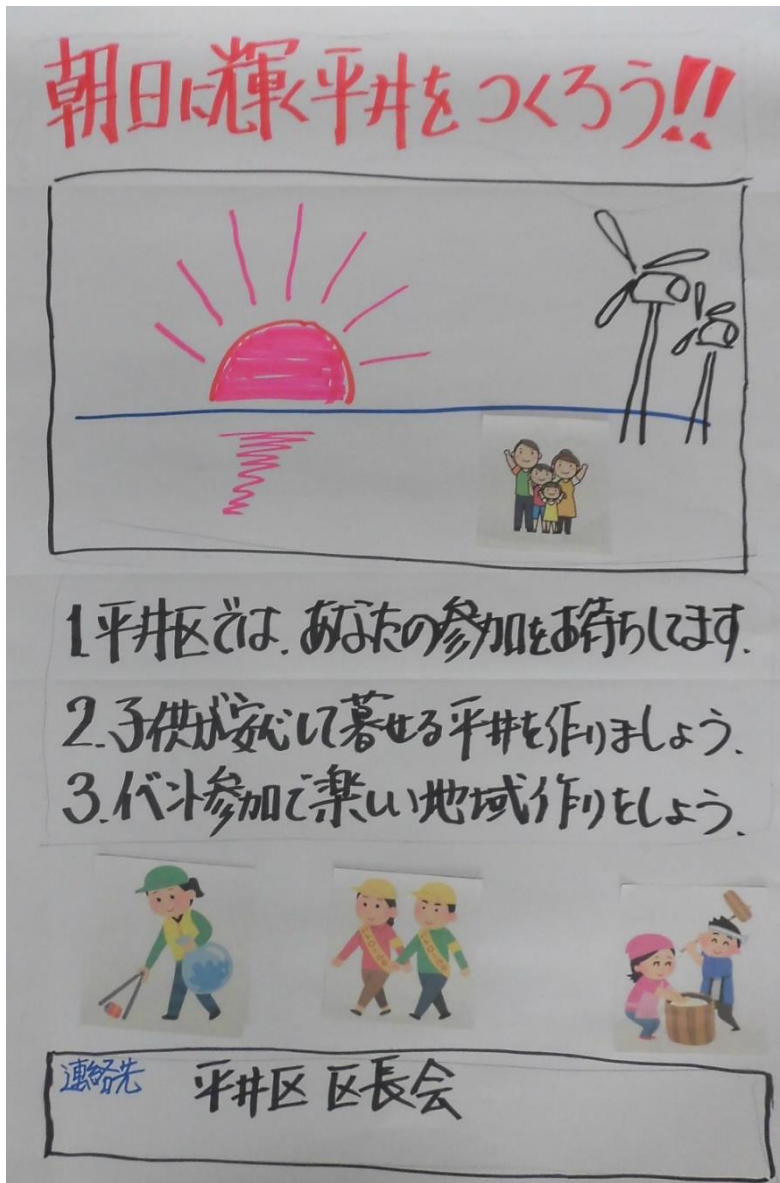 朝日に輝く平井をつくろう!!
1.平井区では、あなたの参加をお待ちしてます。
2.子供が安心して暮せる平井を作りましょう。
3.イベント参加で楽しい地域作りをしよう。
連絡先 平井区 区長会